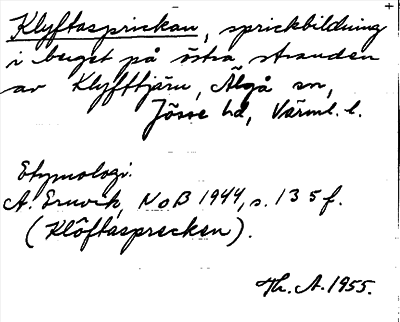 Klyftasprickan, sprickbildning
i berget på östra stranden
av Klyfttjärn, Älgå sn,
Jösse hd, Värml. l.
Etymologi:
A. Ernvik, NoB 1944, s. 135 f.
(Klôftasprecken).
Th. A. 1955.